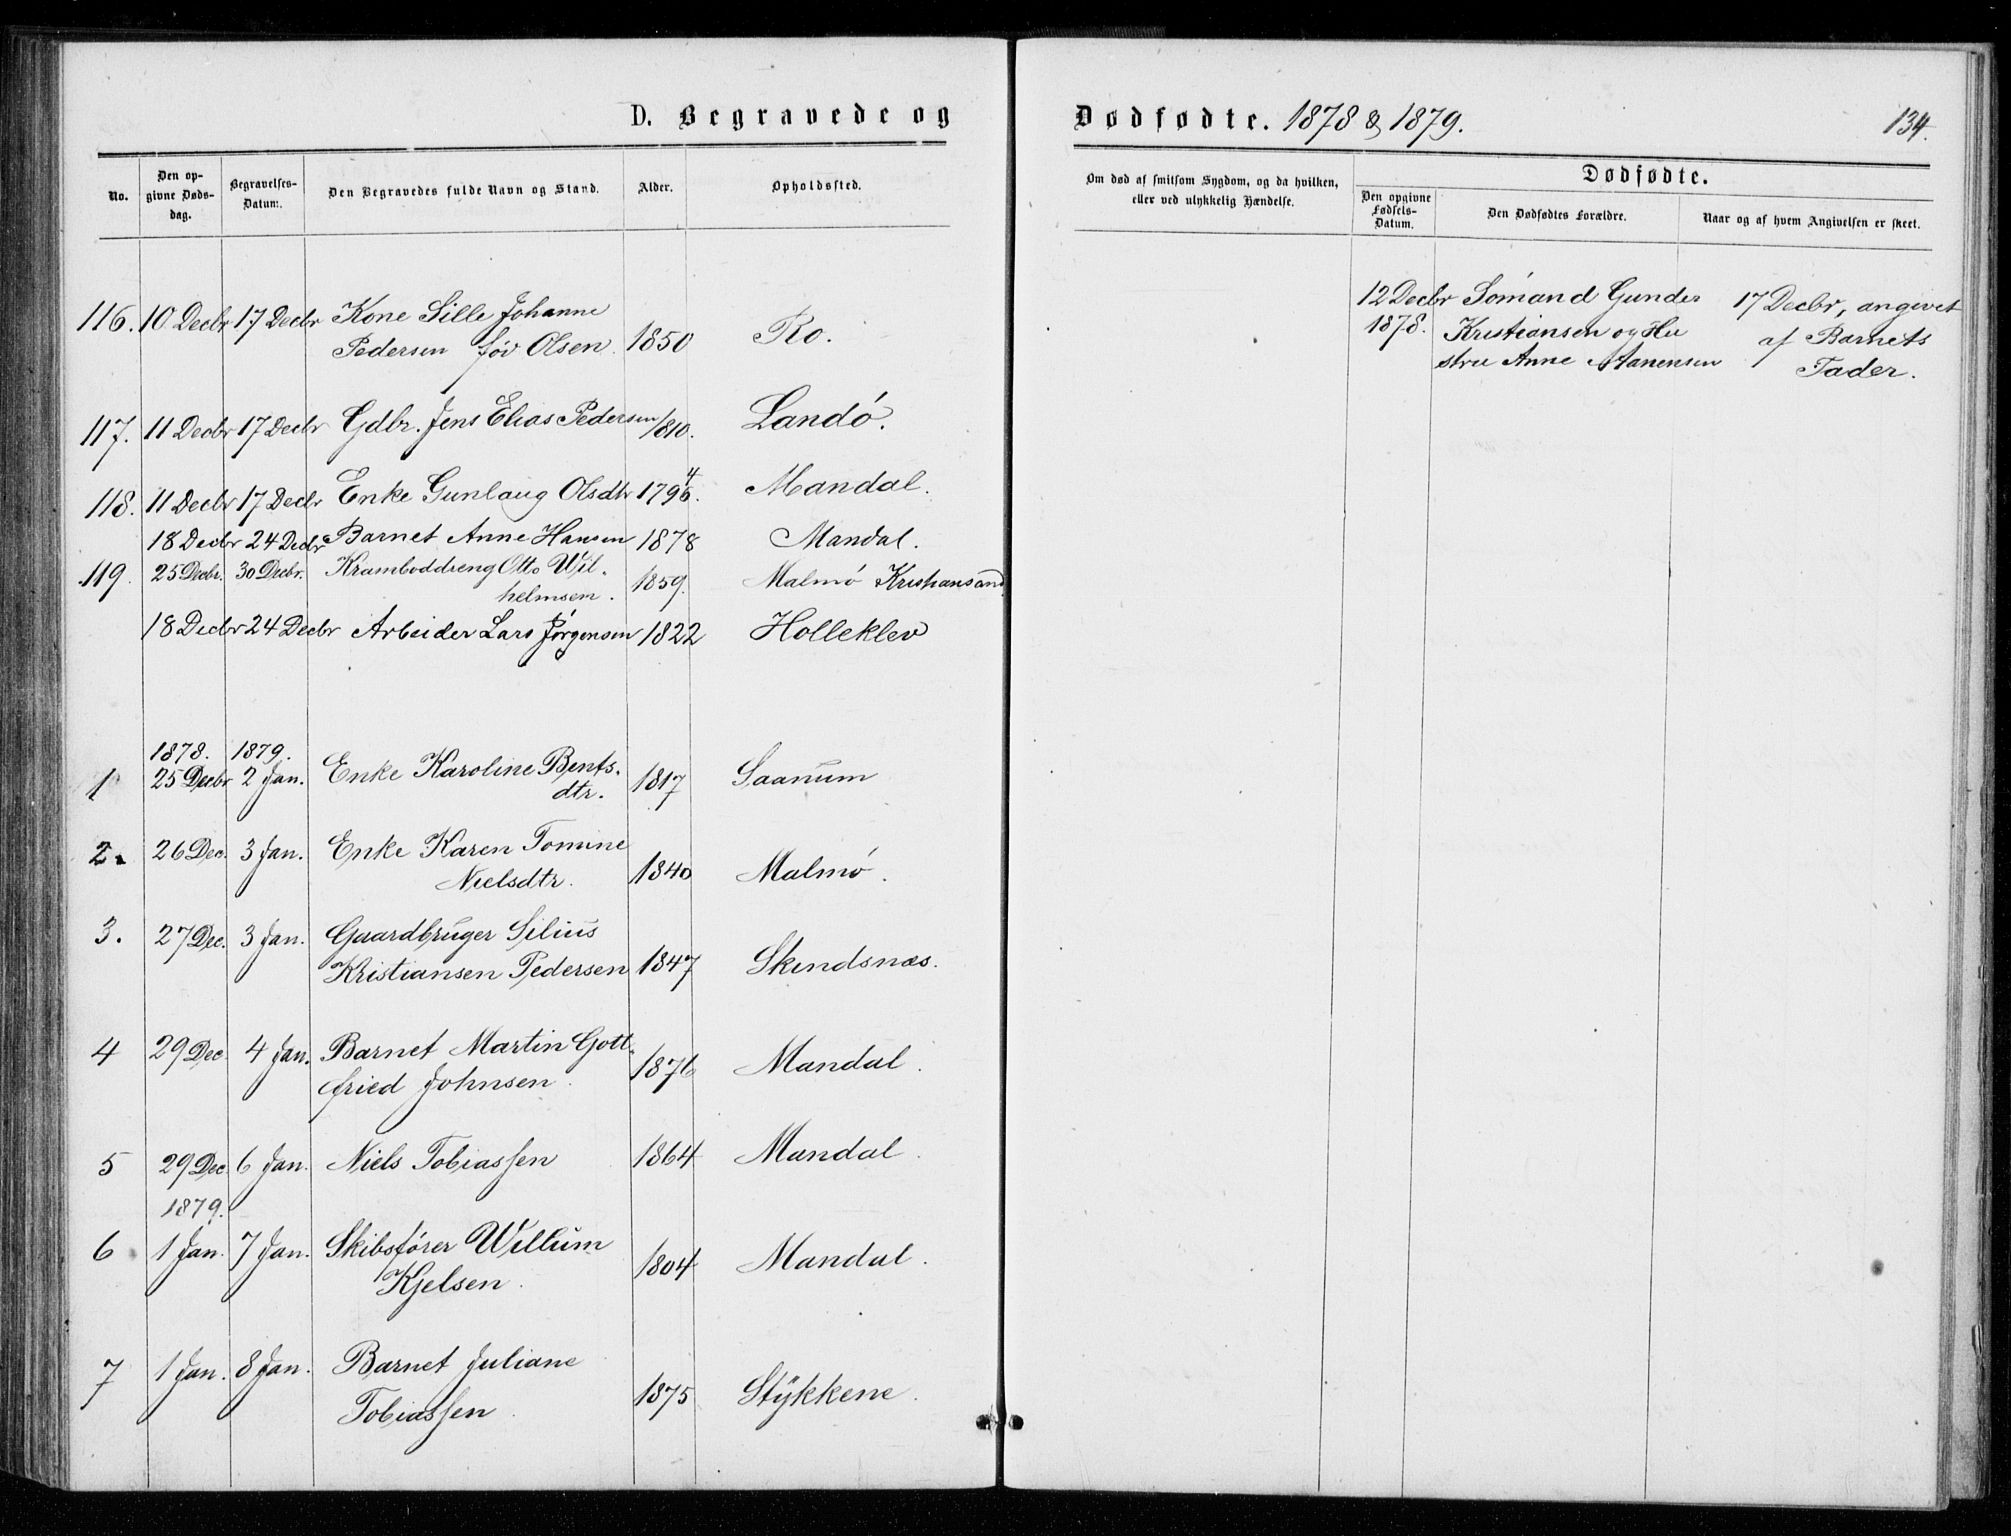 D. Begravede og
No.
Den op-
givne Døds-
dag.
Begravelses-
Datum.
Den Begravedes fulde Navn og Stand.
Alder.
Opholdssted.
116. 10 Decbr 17 Decbr Kone Sille Johanne
Pedersen föd Olsen. 1850 Ro.
117. 11 Decbr 17 Decbr Gdbr. Jens Elias Pedersen 1810. Landó.
118. 11 Decbr 17 Decbr Enke Gunlaug Olsdtr 1794. Mandal.
18 Decbr 24 Decbr Barnet Anne Hansen 1878 Mandal.
119. 25 Decbr. 30 Decbr. Kramboddreng Otto Wil-
helmsen. 1859. Malmó Kristiansand
18 Decbr 24 Decbr Arbeider Lars Jörgensen 1822 Holleklev
1878. 1879.
1 25 Decbr 2 Jan. Enke Karoline Bents-
dtr. 1817 Saanum
2. 26 Dec. 3 Jan. Enke Karen Tomine
Nielsdtr. 1840 Malmó.
3. 27 Dec. 3 Jan. Gaardbruger Silius
Kristiansen Pedersen 1847 Skindsnæs.
4 29 Dec. 4 Jan. Barnet Martin Gott-
fried Johnsen. 1876 Mandal.
5 29 Dec. 6 Jan. Niels Tobiassen 1864 Mandal.
1879.
6 1 Jan. 7 Jan. Skibsfórer Willum
Kjelsen. 1804 Mandal.
7 1 Jan. 8 Jan. Barnet Juliane
Tobiassen. 1875 Stykkene.
Dødfødte. 1878 & 1879.
134.
Om død af smitsom Sygdom, og da hvilken,
eller ved ulykkelig Hændelse.
Dødfødte.
Den opgivne
Fødsels-
Datum.
Den Dødfødtes Forældre.
Naar og af hvem Angivelsen er skeet.
12 Decbr Sómand Gunder 17 Decbr, angivet
1878. Kristiansen og Hu af Barnets
stru Anne Aanensen Fader.